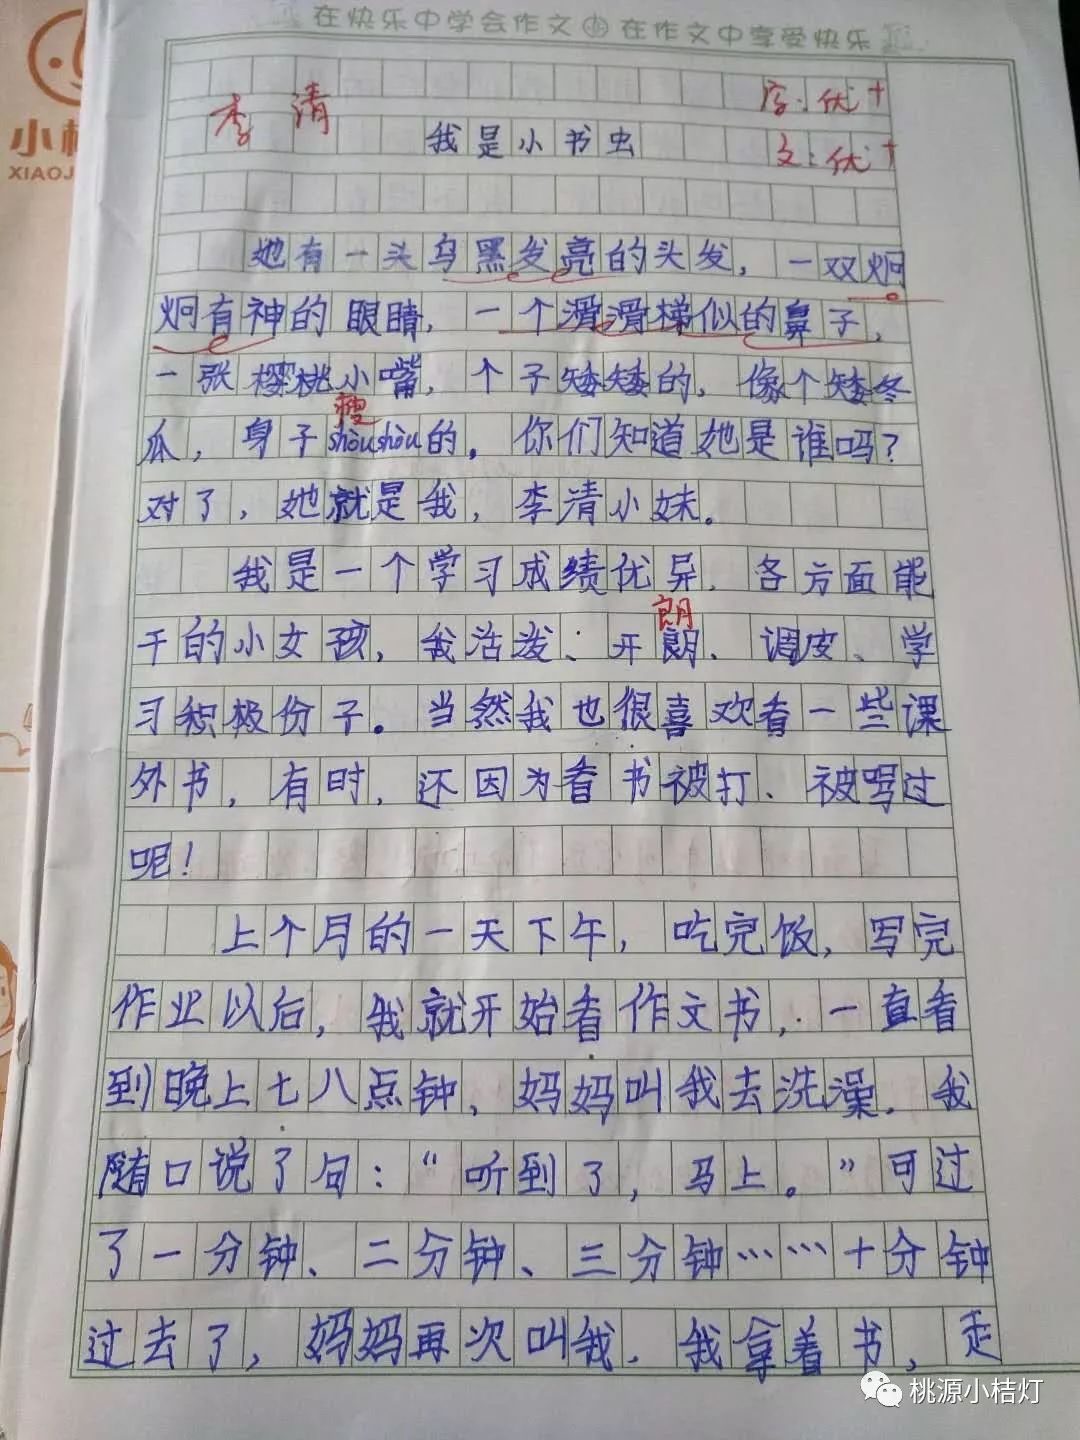 在快乐中学会作文 在作文中享受快乐
小桔
XIAOJ
李清
字:优+
我是小书虫
文:优+
她有一头乌黑发亮的头发,一双炯
炯有神的眼睛,一个滑滑梯似的鼻子,
一张樱桃小嘴,个子矮矮的,像个矮冬
瘦
瓜,身子shòushòu的。你们知道她是谁吗?
对了,她就是我,李清小妹。
我是一个学习成绩优异,各方面能
朗
干的小女孩,我活泼、开朗、调皮、学
习积极份子。当然我也很喜欢看一些课
外书,有时,还因为看书被打、被骂过
呢!
上个月的一天下午,吃完饭,写完
作业以后,我就开始看作文书,一直看
到晚上七八点钟,妈妈叫我去洗澡,我
随口说了句:“听到了,马上。”可过
了一分钟、二分钟、三分钟……十分钟
过去了,妈妈再次叫我,我拿着书,走
桃源小桔灯